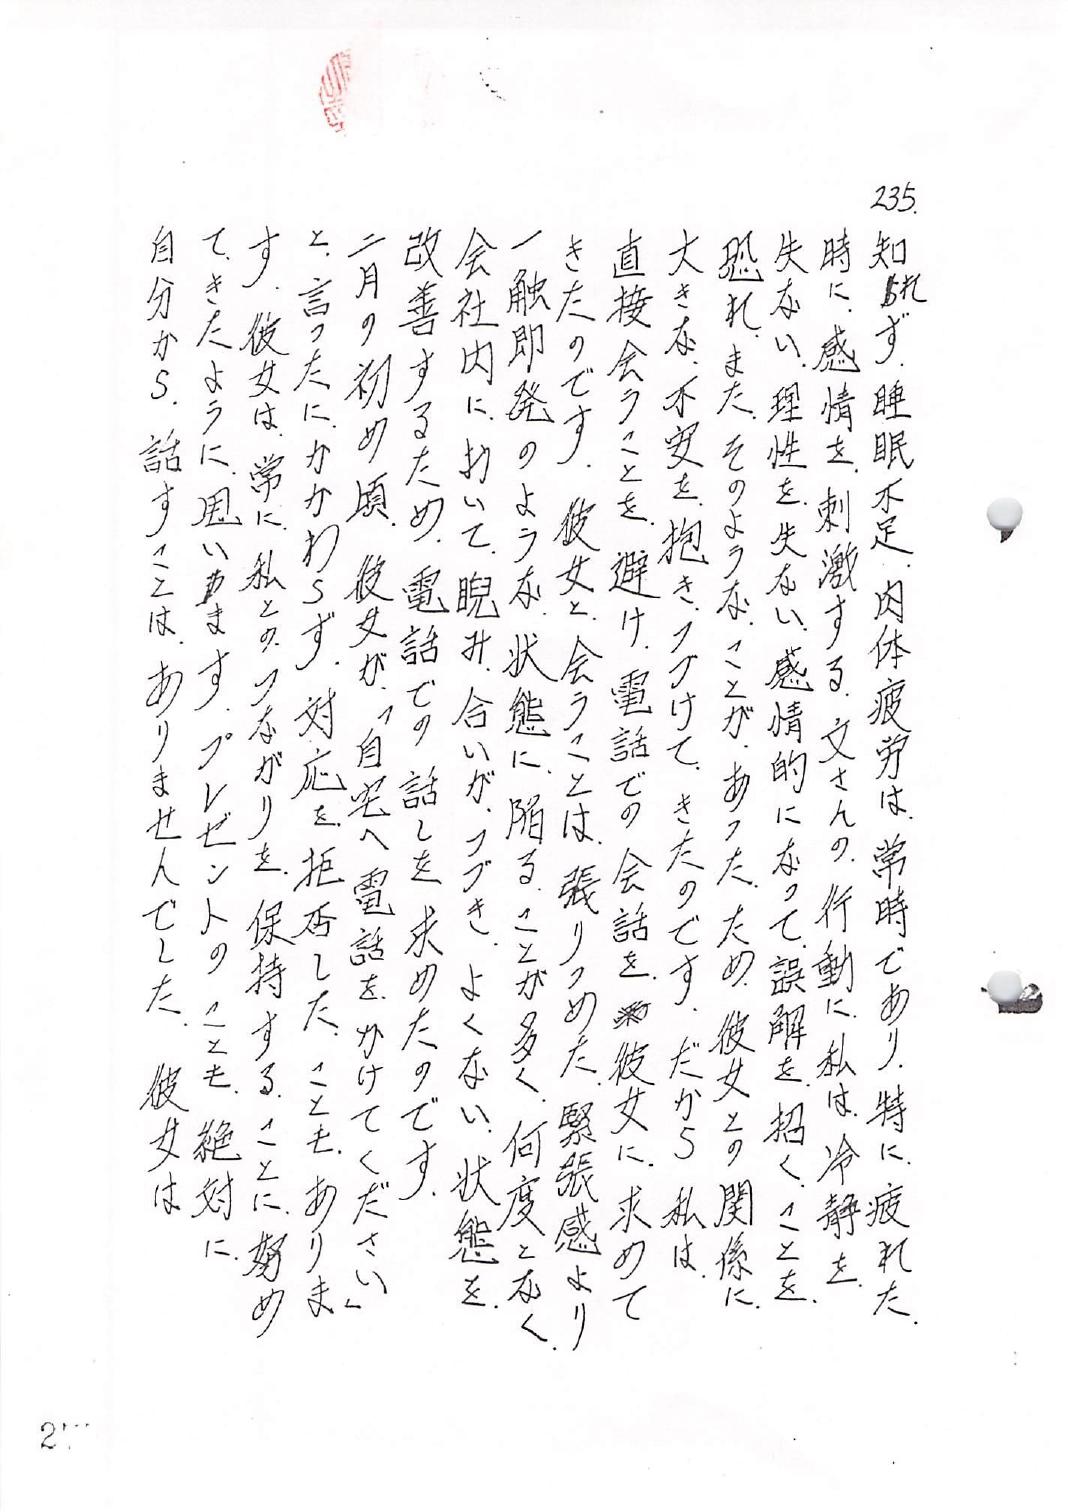 235.
知れず、睡眠不足、肉体疲労は、常時であり、特に、疲れた、
時に、感情を、刺激する、文さんの、行動に、私は、冷静を、
失ない、理性を、失ない、感情的になって、誤解を、招く、ことを、
恐れ、また、そのような、ことが、あった、ため、彼女との関係に、
大きな、不安を、抱き、つづけて、きたのです、だから私は、
直接会うことを、避け、電話での会話を、彼女に、求めて
きたのです、彼女と、会うことは、張りつめた、緊張感より
一触即発のような、状態に、陥る、ことが多く、何度となく、
会社内に、於いて、睨み、合いが、つづき、よくない、状態を、
改善するため、電話での話しを求めたのです、
二月の初め頃、彼女が、「自宅へ電話を、かけてください」
と、言ったに、かかわらず、対応を、拒否した、ことも、ありま
す、彼女は、常に、私との、つながりを、保持する、ことに、努め
て、きたように、思います、プレゼントの、ことも、絶対に、
自分から、話すことは、ありませんでした、彼女は
2